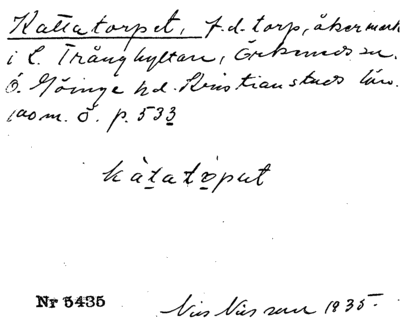 Kattatorpet, f.d. torp, åkermark
i L. Trånghyltan, Örkeneds sn.
Ö. Göinge hd. Kristianstads län.
100 m. Ö. p. 533
kàtatòput
Nr 5435
Nils Nilsson 1935.